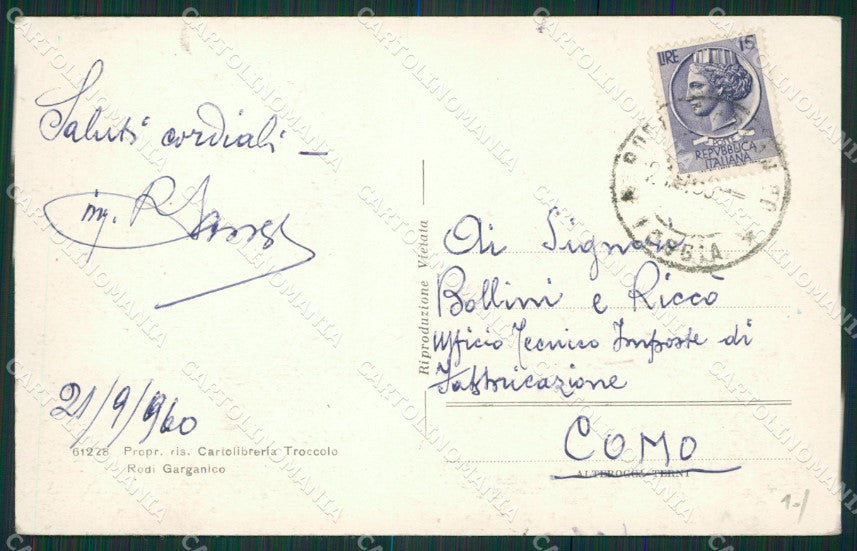 LIRE 15
POSTE
REPVBBLICA
ITALIANA
FOGGIA
Saluti cordiali -
ing. R.
21/9/960
61228 Propr. ris. Cartolibreria Troccolo
Rodi Garganico
Riproduzione Vietata
Ai Signori
Bollini e Riccò
Ufficio Tecnico Imposte di
Fabbricazione
COMO
ALTEROCCA-TERNI
1-/
CARTOLINOMANIA